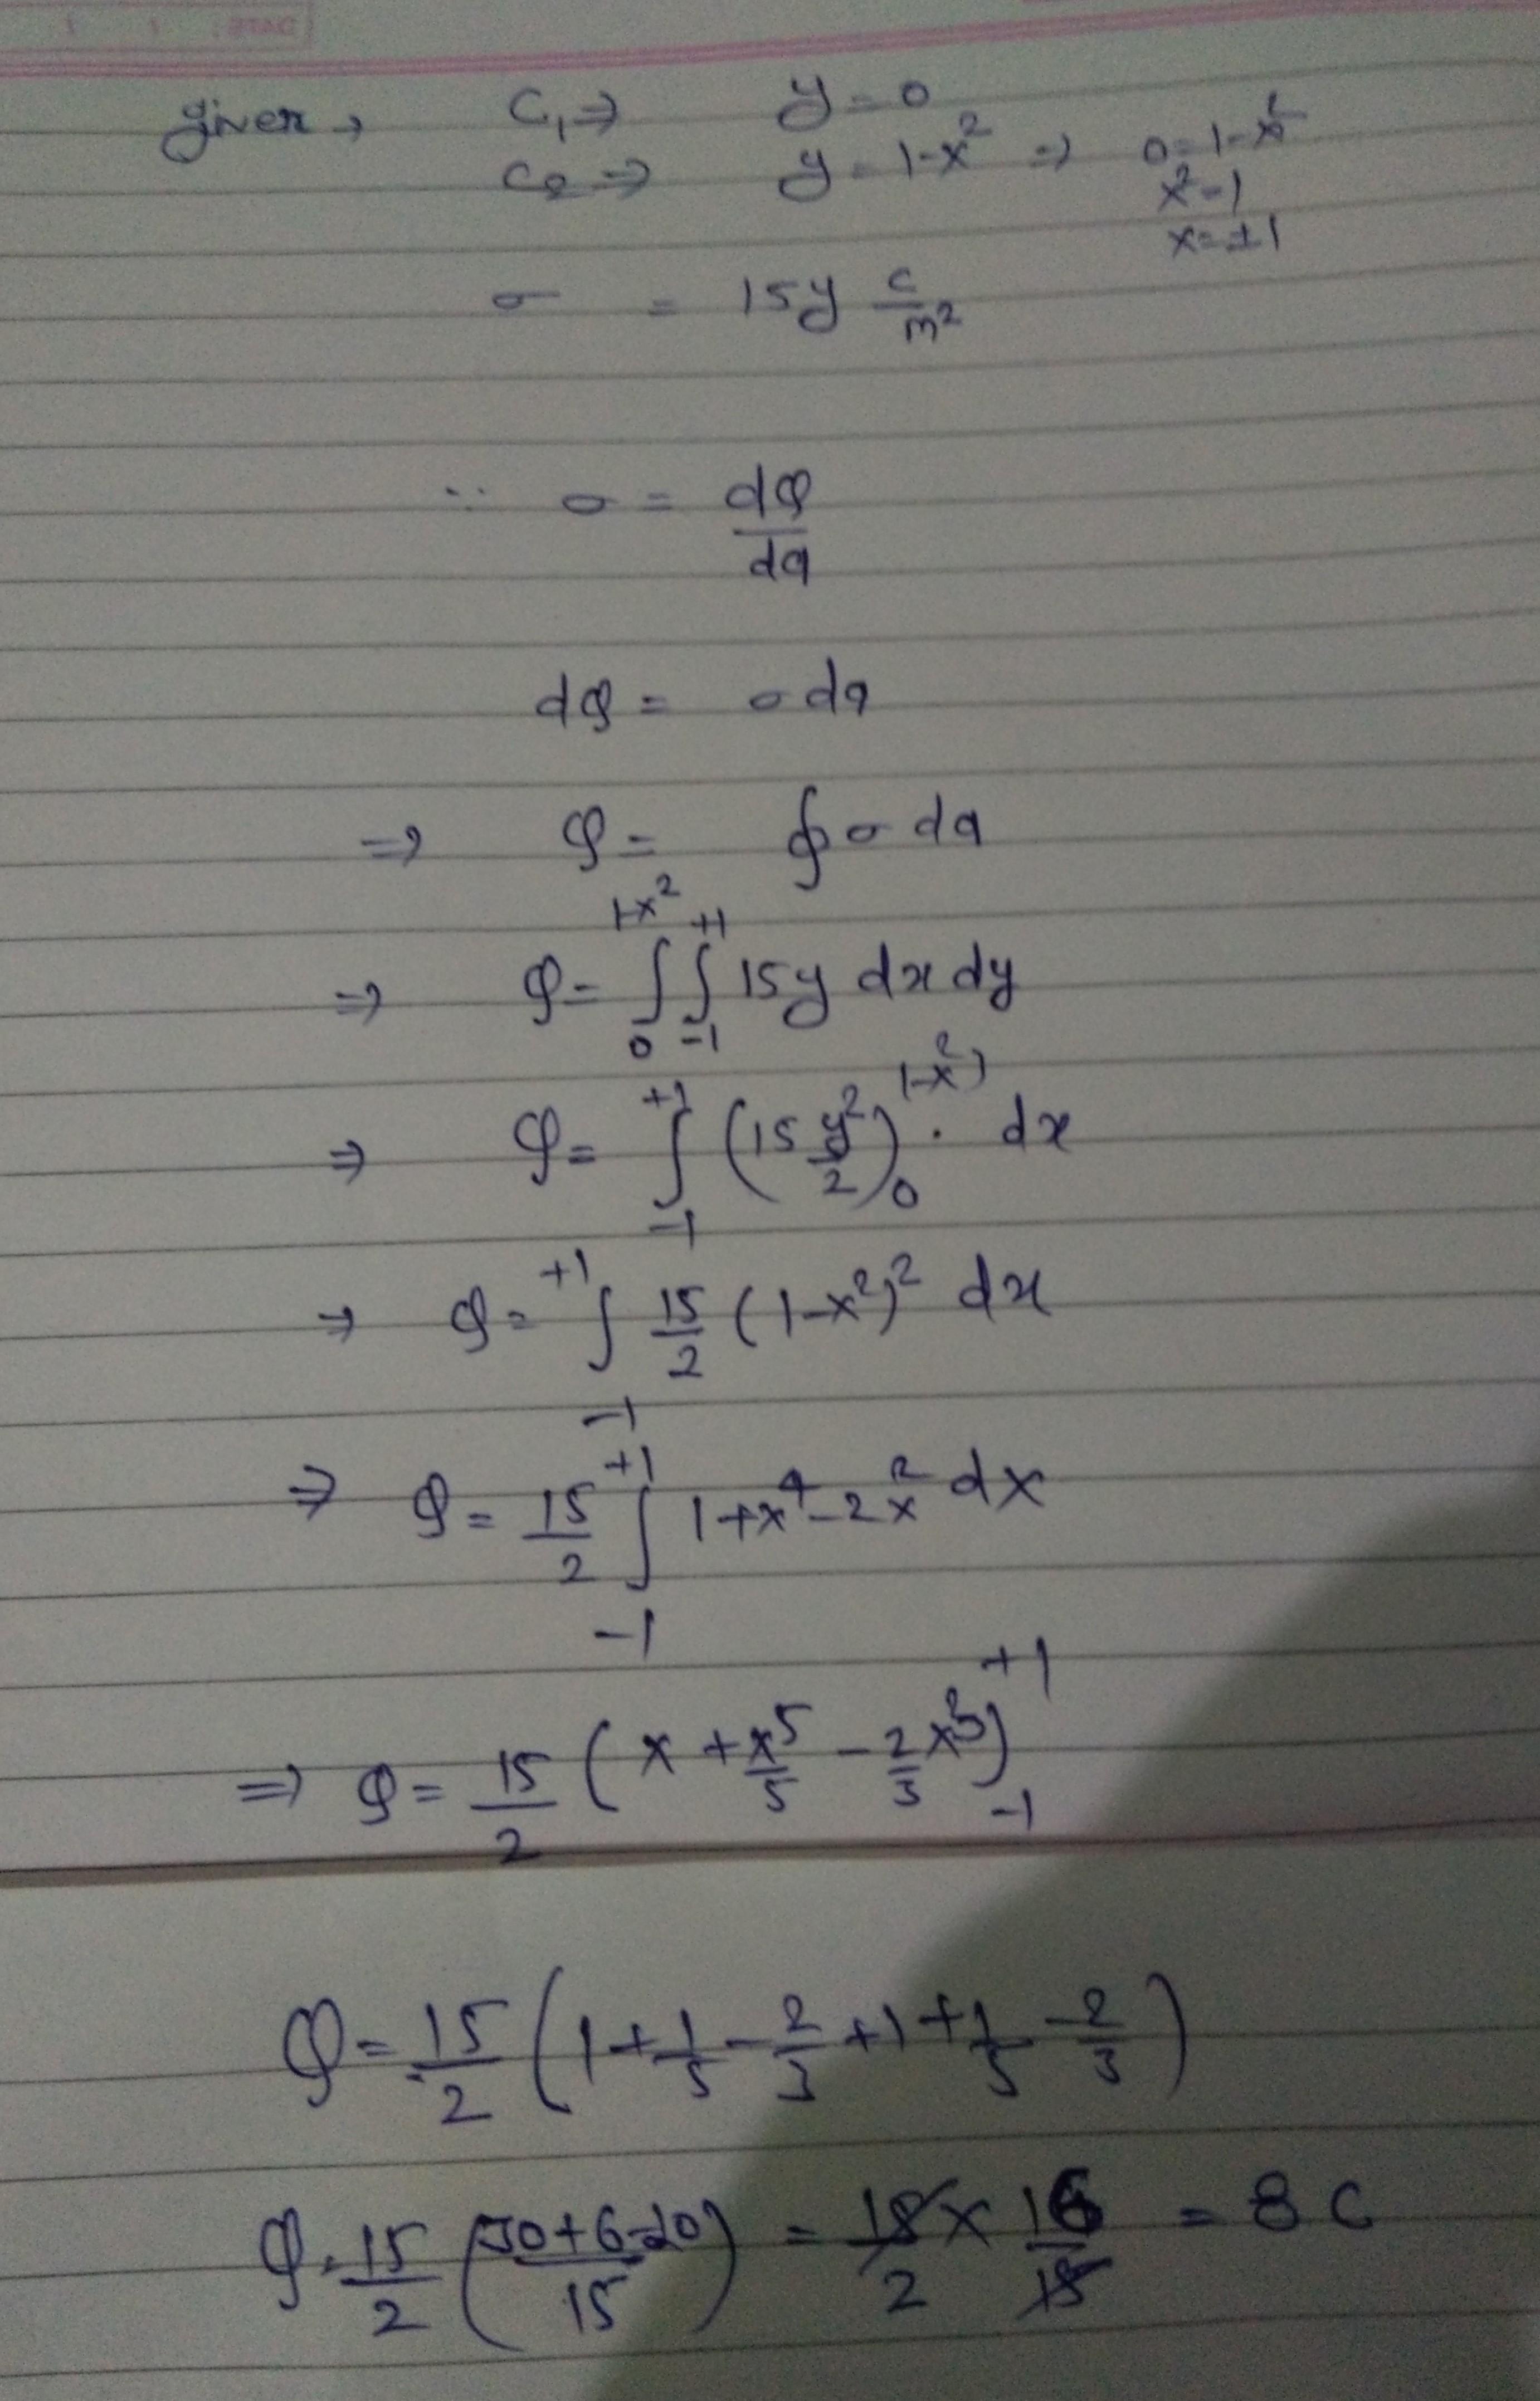 given, C₁ ⇒ y = 0
C₂ ⇒ y = 1-x² ⇒ 0 = 1-x²
x² = 1
x = ±1
σ = 15y C/m²
∵ σ = dQ/da
dQ = σ da
⇒ Q = ∮ σ da
⇒ Q = ∫₀^(1-x²) ∫₋₁^(+1) 15y dx dy
⇒ Q = ∫₋₁^(+1) (15 y²/2)₀^(1-x²) . dx
→ Q = ∫₋₁^(+1) 15/2 (1-x²)² dx
⇒ Q = 15/2 ∫₋₁^(+1) 1+x⁴-2x² dx
⇒ Q = 15/2 (x + x⁵/5 - 2/3 x³)₋₁^(+1)
Q = 15/2 (1 + 1/5 - 2/3 + 1 + 1/5 - 2/3)
Q = 15/2 ((30+6-20)/15) = 15/2 x 16/15 = 8 C